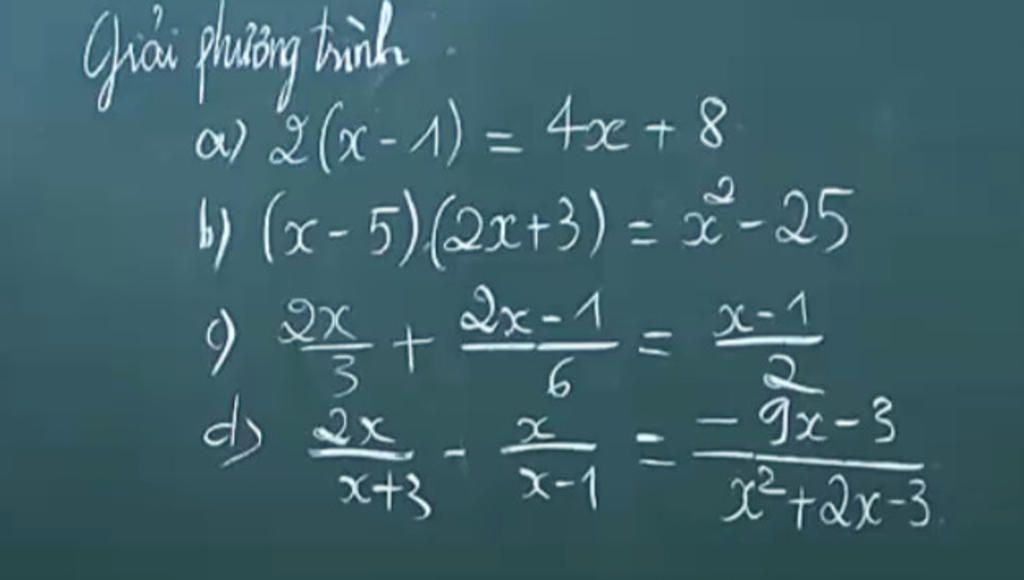 Giải phương trình
a) 2(x-1) = 4x + 8
b) (x-5).(2x+3) = x² - 25
c) 2x/3 + (2x-1)/6 = (x-1)/2
d) 2x/(x+3) - x/(x-1) = (-9x-3)/(x²+2x-3)